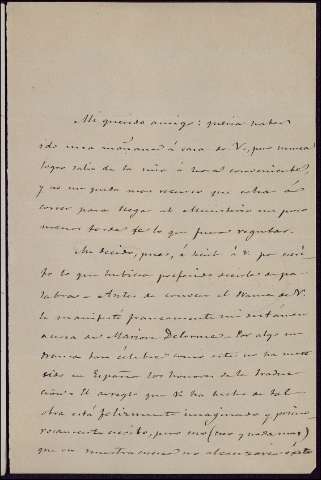 Mi querido amigo: queria haber
ido una mañana á casa de V., pero nunca
logro salir de la mia á hora conveniente,
y no me queda mas recurso que echar á
correr para llegar al Ministerio un poco
menos tarde de lo que fuera regular.
Me decido, pues, á decirle á V. por escri-
to lo que hubiera preferido decirle de pa-
labra. Antes de conocer el drama de V.
le manifesté francamente mi dictámen
acerca de Marion Delorme. Por algo un
drama tan célebre como este no ha mere-
cido en España los honores de la traduc-
cion. El arreglo que V. ha hecho de tal
obra está felizmente imaginado y primo-
rosamente escrito, pero creo (creo y nada mas)
que en nuestra escena no alcanzaría éxito